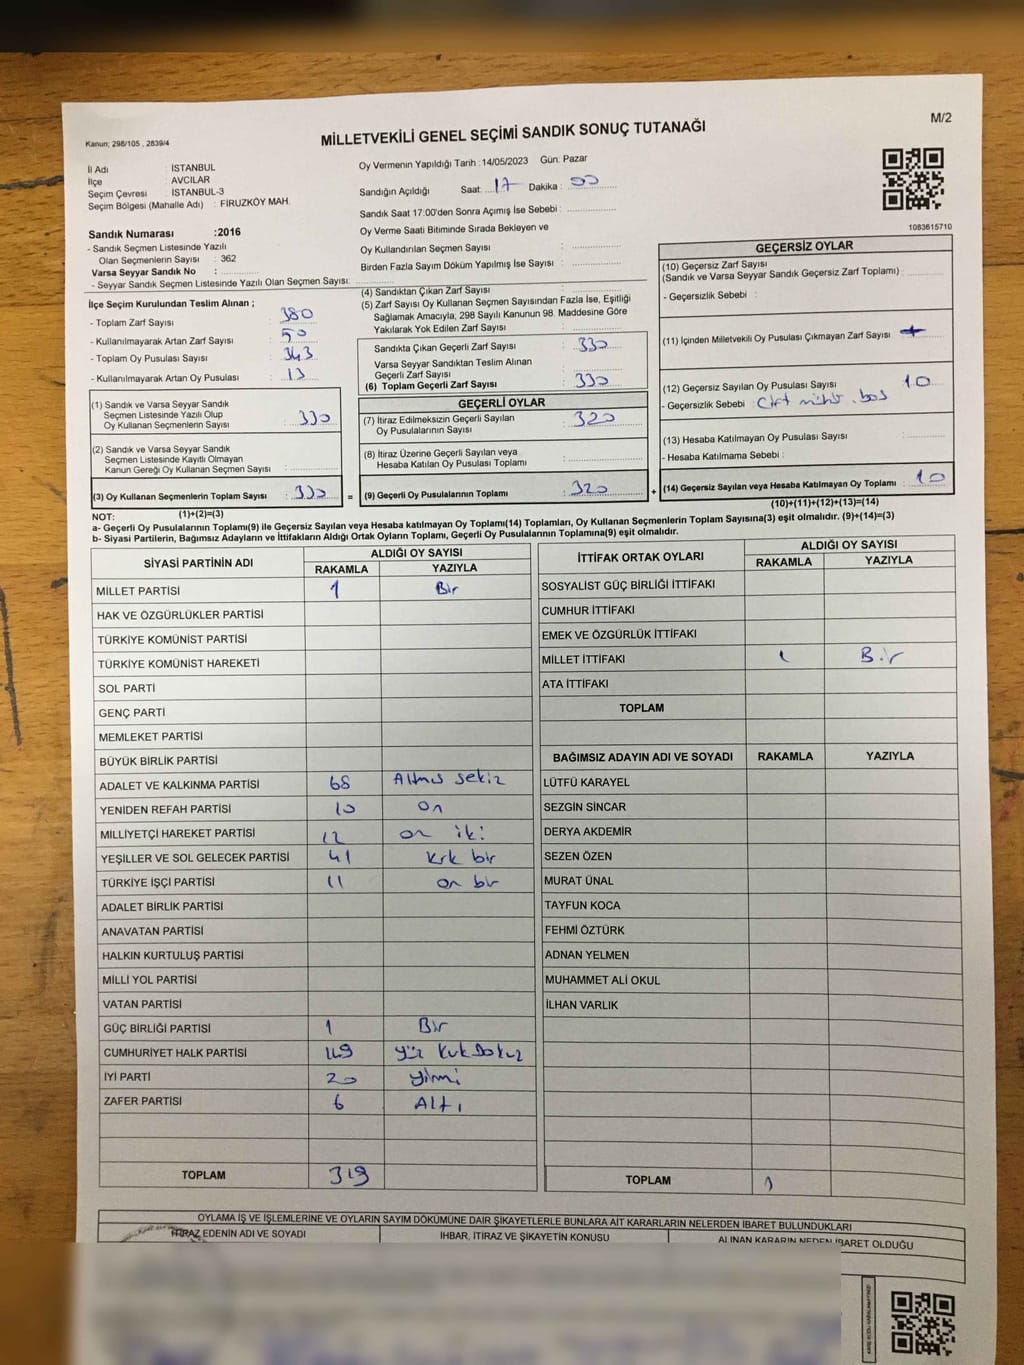 M/2
Kanun; 298/105 , 2839/4
MİLLETVEKİLİ GENEL SEÇİMİ SANDIK SONUÇ TUTANAĞI
İl Adı : İSTANBUL
İlçe : AVCILAR
Seçim Çevresi : İSTANBUL-3
Seçim Bölgesi (Mahalle Adı) : FİRUZKÖY MAH.
Sandık Numarası :2016
- Sandık Seçmen Listesinde Yazılı
Olan Seçmenlerin Sayısı : 362
Varsa Seyyar Sandık No :
- Seyyar Sandık Seçmen Listesinde Yazılı Olan Seçmen Sayısı:
Oy Vermenin Yapıldığı Tarih : 14/05/2023 Gün: Pazar
Sandığın Açıldığı Saat 17 Dakika : 00
Sandık Saat 17:00'den Sonra Açımış İse Sebebi :
Oy Verme Saati Bitiminde Sırada Bekleyen ve
Oy Kullandırılan Seçmen Sayısı :
Birden Fazla Sayım Döküm Yapılmış İse Sayısı :
1083615710
İlçe Seçim Kurulundan Teslim Alınan ;
- Toplam Zarf Sayısı : 380
- Kullanılmayarak Artan Zarf Sayısı : 50
- Toplam Oy Pusulası Sayısı : 343
- Kullanılmayarak Artan Oy Pusulası : 13
(1) Sandık ve Varsa Seyyar Sandık
Seçmen Listesinde Yazılı Olup
Oy Kullanan Seçmenlerin Sayısı : 330
(2) Sandık ve Varsa Seyyar Sandık
Seçmen Listesinde Kayıtlı Olmayan
Kanun Gereği Oy Kullanan Seçmen Sayısı :
(3) Oy Kullanan Seçmenlerin Toplam Sayısı : 330 =
(1)+(2)=(3)
(4) Sandıktan Çıkan Zarf Sayısı :
(5) Zarf Sayısı Oy Kullanan Seçmen Sayısından Fazla İse, Eşitliği
Sağlamak Amacıyla; 298 Sayılı Kanunun 98. Maddesine Göre
Yakılarak Yok Edilen Zarf Sayısı :
Sandıkta Çıkan Geçerli Zarf Sayısı : 330
Varsa Seyyar Sandıktan Teslim Alınan
Geçerli Zarf Sayısı :
(6) Toplam Geçerli Zarf Sayısı : 330
GEÇERLİ OYLAR
(7) İtiraz Edilmeksizin Geçerli Sayılan
Oy Pusulalarının Sayısı : 320
(8) İtiraz Üzerine Geçerli Sayılan veya
Hesaba Katılan Oy Pusulası Toplamı :
(9) Geçerli Oy Pusulalarının Toplamı : 320 +
GEÇERSİZ OYLAR
(10) Geçersiz Zarf Sayısı
(Sandık ve Varsa Seyyar Sandık Geçersiz Zarf Toplamı) :
- Geçersizlik Sebebi :
(11) İçinden Milletvekili Oy Pusulası Çıkmayan Zarf Sayısı :
(12) Geçersiz Sayılan Oy Pusulası Sayısı : 10
- Geçersizlik Sebebi : Çift mühür, boş
(13) Hesaba Katılmayan Oy Pusulası Sayısı :
- Hesaba Katılmama Sebebi :
(14) Geçersiz Sayılan veya Hesaba Katılmayan Oy Toplamı : 10
(10)+(11)+(12)+(13)=(14)
NOT:
a- Geçerli Oy Pusulalarının Toplamı(9) ile Geçersiz Sayılan veya Hesaba katılmayan Oy Toplamı(14) Toplamları, Oy Kullanan Seçmenlerin Toplam Sayısına(3) eşit olmalıdır. (9)+(14)=(3)
b- Siyasi Partilerin, Bağımsız Adayların ve İttifakların Aldığı Ortak Oyların Toplamı, Geçerli Oy Pusulalarının Toplamına(9) eşit olmalıdır.
SİYASİ PARTİNİN ADI ALDIĞI OY SAYISI
RAKAMLA YAZIYLA
MİLLET PARTİSİ 1 Bir
HAK VE ÖZGÜRLÜKLER PARTİSİ
TÜRKİYE KOMÜNİST PARTİSİ
TÜRKİYE KOMÜNİST HAREKETİ
SOL PARTİ
GENÇ PARTİ
MEMLEKET PARTİSİ
BÜYÜK BİRLİK PARTİSİ
ADALET VE KALKINMA PARTİSİ 68 Altmış sekiz
YENİDEN REFAH PARTİSİ 10 On
MİLLİYETÇİ HAREKET PARTİSİ 12 on iki
YEŞİLLER VE SOL GELECEK PARTİSİ 41 Kırk bir
TÜRKİYE İŞÇİ PARTİSİ 11 on bir
ADALET BİRLİK PARTİSİ
ANAVATAN PARTİSİ
HALKIN KURTULUŞ PARTİSİ
MİLLİ YOL PARTİSİ
VATAN PARTİSİ
GÜÇ BİRLİĞİ PARTİSİ 1 Bir
CUMHURİYET HALK PARTİSİ 149 yüz kırk Dokuz
İYİ PARTİ 20 yirmi
ZAFER PARTİSİ 6 Altı
TOPLAM 319
İTTİFAK ORTAK OYLARI ALDIĞI OY SAYISI
RAKAMLA YAZIYLA
SOSYALİST GÜÇ BİRLİĞİ İTTİFAKI
CUMHUR İTTİFAKI
EMEK VE ÖZGÜRLÜK İTTİFAKI
MİLLET İTTİFAKI 1 Bir
ATA İTTİFAKI
TOPLAM
BAĞIMSIZ ADAYIN ADI VE SOYADI RAKAMLA YAZIYLA
LÜTFÜ KARAYEL
SEZGİN SİNCAR
DERYA AKDEMİR
SEZEN ÖZEN
MURAT ÜNAL
TAYFUN KOCA
FEHMİ ÖZTÜRK
ADNAN YELMEN
MUHAMMET ALİ OKUL
İLHAN VARLIK
TOPLAM 1
OYLAMA İŞ VE İŞLEMLERİNE VE OYLARIN SAYIM DÖKÜMÜNE DAİR ŞİKAYETLERLE BUNLARA AİT KARARLARIN NELERDEN İBARET BULUNDUKLARI
İTİRAZ EDENİN ADI VE SOYADI İHBAR, İTİRAZ VE ŞİKAYETİN KONUSU ALINAN KARARIN NEDEN İBARET OLDUĞU